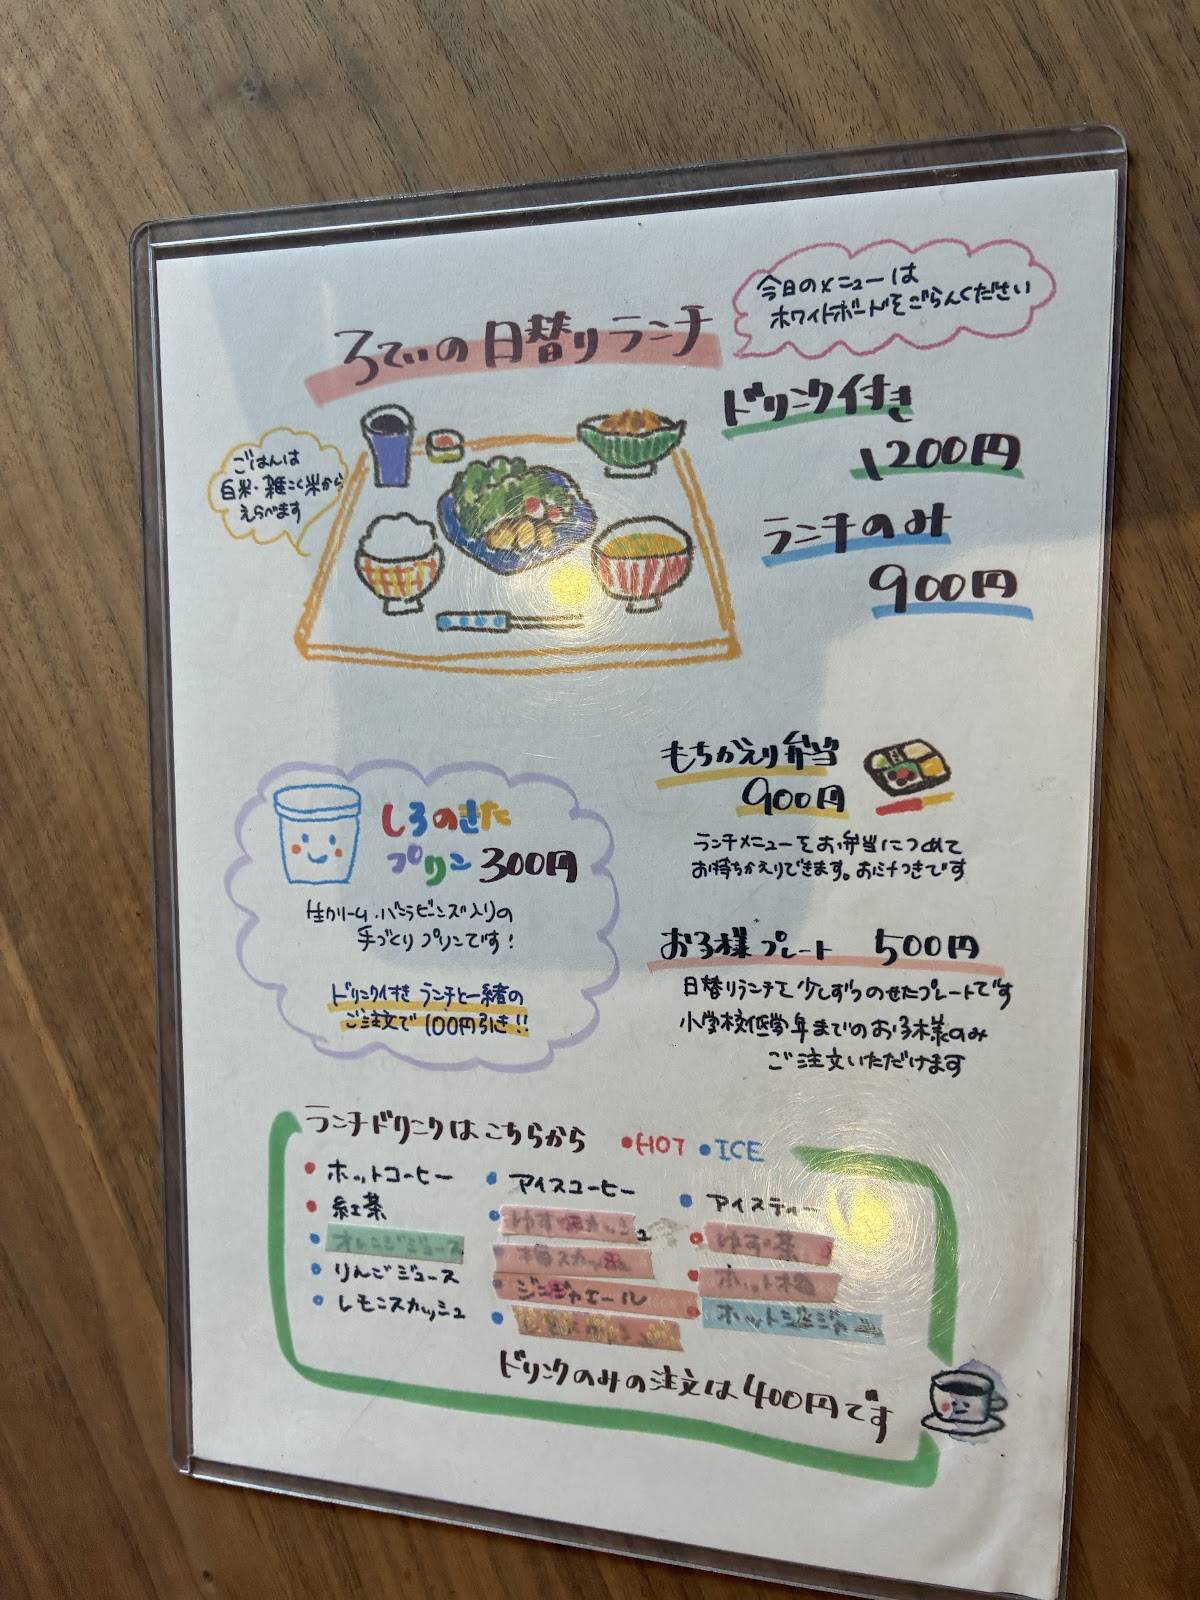 ろてぃの日替りランチ
今日のメニューは
ホワイトボードをごらんください
ドリンク付き
1200円
ごはんは
白米・雑こく米から
えらべます
ランチのみ
900円
もちかえり弁当
900円
ランチメニューをお弁当につめて
お持ちかえりできます。おにぎりつきです
しろのきた
プリン 300円
生クリーム・バニラビーンズ入りの
手づくりプリンです!
ドリンク付きランチと一緒の
ご注文で100円引き!!
お子様プレート 500円
日替りランチを少しずつのせたプレートです
小学校低学年までのお子様のみ
ご注文いただけます
ランチドリンクはこちらから
•HOT •ICE
•ホットコーヒー
•紅茶
•オレンジジュース
•りんごジュース
•レモンスカッシュ
•アイスコーヒー
•ゆずスカッシュ
梅スカッシュ
ジンジャエール
•アイスティー
•ゆず茶
•ホット梅
•ホットジンジャー
ドリンクのみの注文は400円です